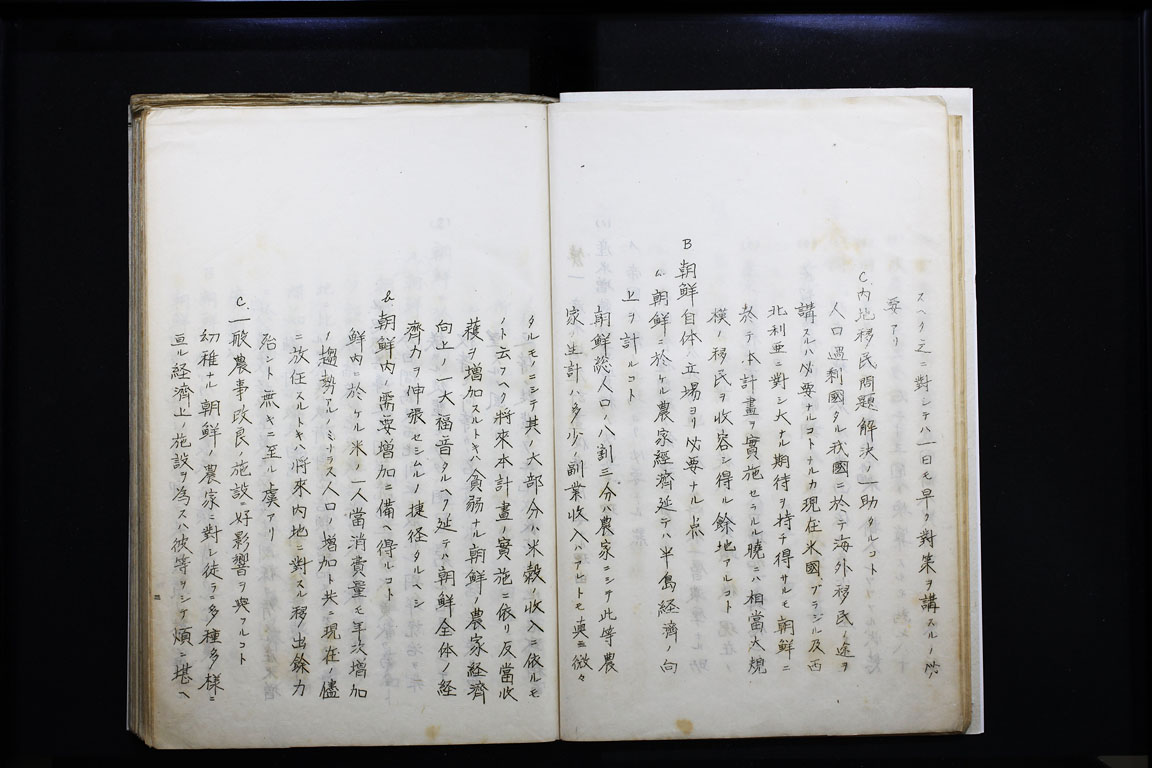 スヘク之ニ對シテハ一日モ早ク對策ヲ講スルノ必
要アリ
C.内地移民問題解決ノ一助タルコト
人口過剩國タル我國ニ於テ海外移民ノ途ヲ
講スルハ必要ナルコトナルカ現在米國、ブラジル及西
北利亜ニ對シ大ナル期待ヲ持チ得サルモ朝鮮ニ
於テ本計畫ヲ實施セラルル曉ニハ相當大規
模ノ移民ヲ收容シ得ル餘地アルコト
B 朝鮮自体ノ立場ヨリ必要ナル点
a. 朝鮮ニ於ケル農家経濟延テハ半島経濟ノ向
上ヲ計ルコト
朝鮮総人口ノ八割三分ハ農家ニシテ此等農
家ノ生計ハ多少ノ副業收入ハアレトモ真ニ微々
タルモノニシテ其ノ大部分ハ米穀ノ收入ニ依ルモ
ノト云フヘク將來本計畫ノ實施ニ依リ反當收
穫ヲ増加スルトキハ貧弱ナル朝鮮ノ農家経濟
向上ノ一大福音タルヘク延テハ朝鮮全体ノ経
濟力ヲ伸張セシムルノ捷径タルヘシ
b 朝鮮内ノ需要増加ニ備ヘ得ルコト
鮮内ニ於ケル米ノ一人當消費量モ年次増加
ノ趨勢アルノミナラス人口ノ増加ト共ニ現在ノ儘
ニ放任スルトキハ將來内地ニ對スル移出餘力
殆ント無キニ至ル虞アリ
C.一般農事改良ノ施設ニ好影響ヲ與フルコト
幼稚ナル朝鮮ノ農家ニ對シ徒ラニ多種多様ニ
亘ル経濟上ノ施設ヲ為スハ彼等ヲシテ煩ニ堪ヘ